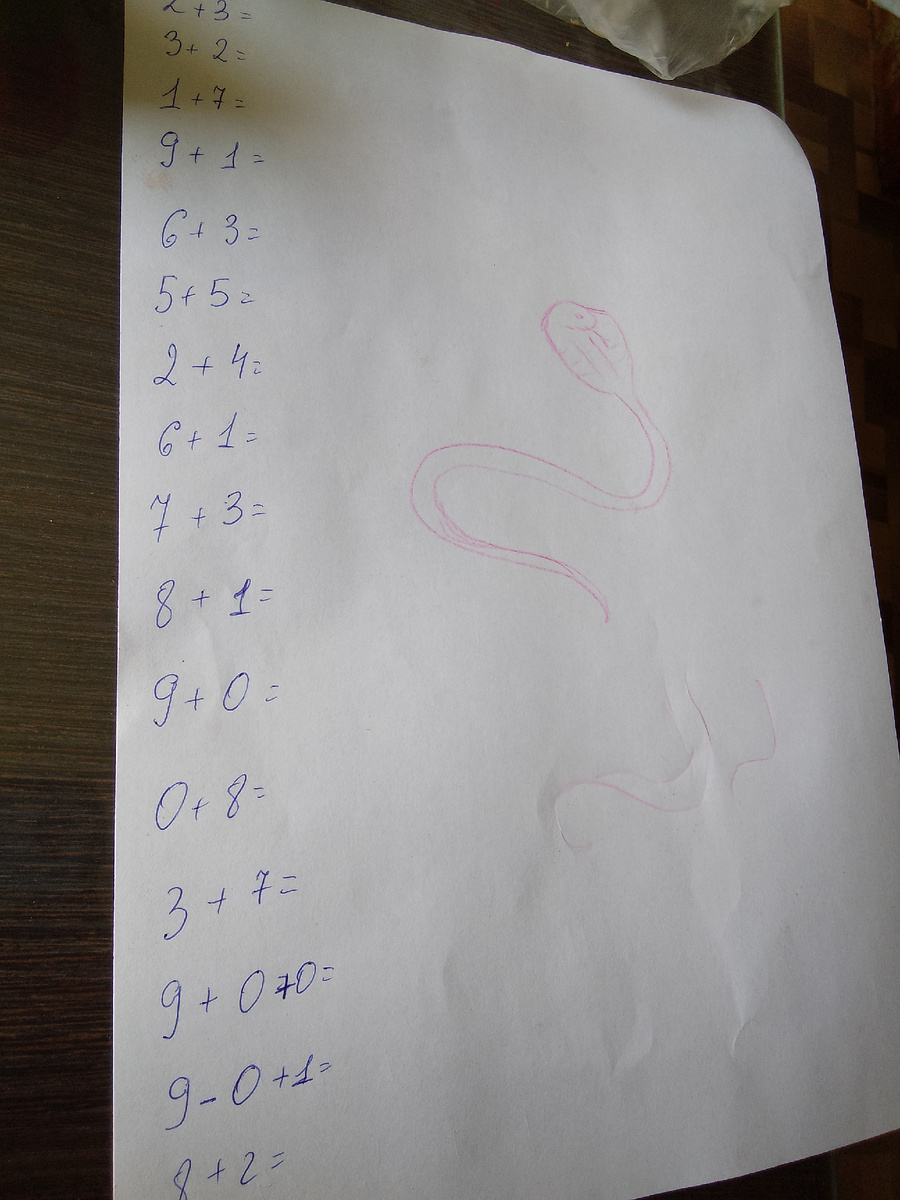 2+3=
3+2=
1+7=
9+1=
6+3=
5+5=
2+4=
6+1=
7+3=
8+1=
9+0=
0+8=
3+7=
9+0+0=
9-0+1=
8+2=